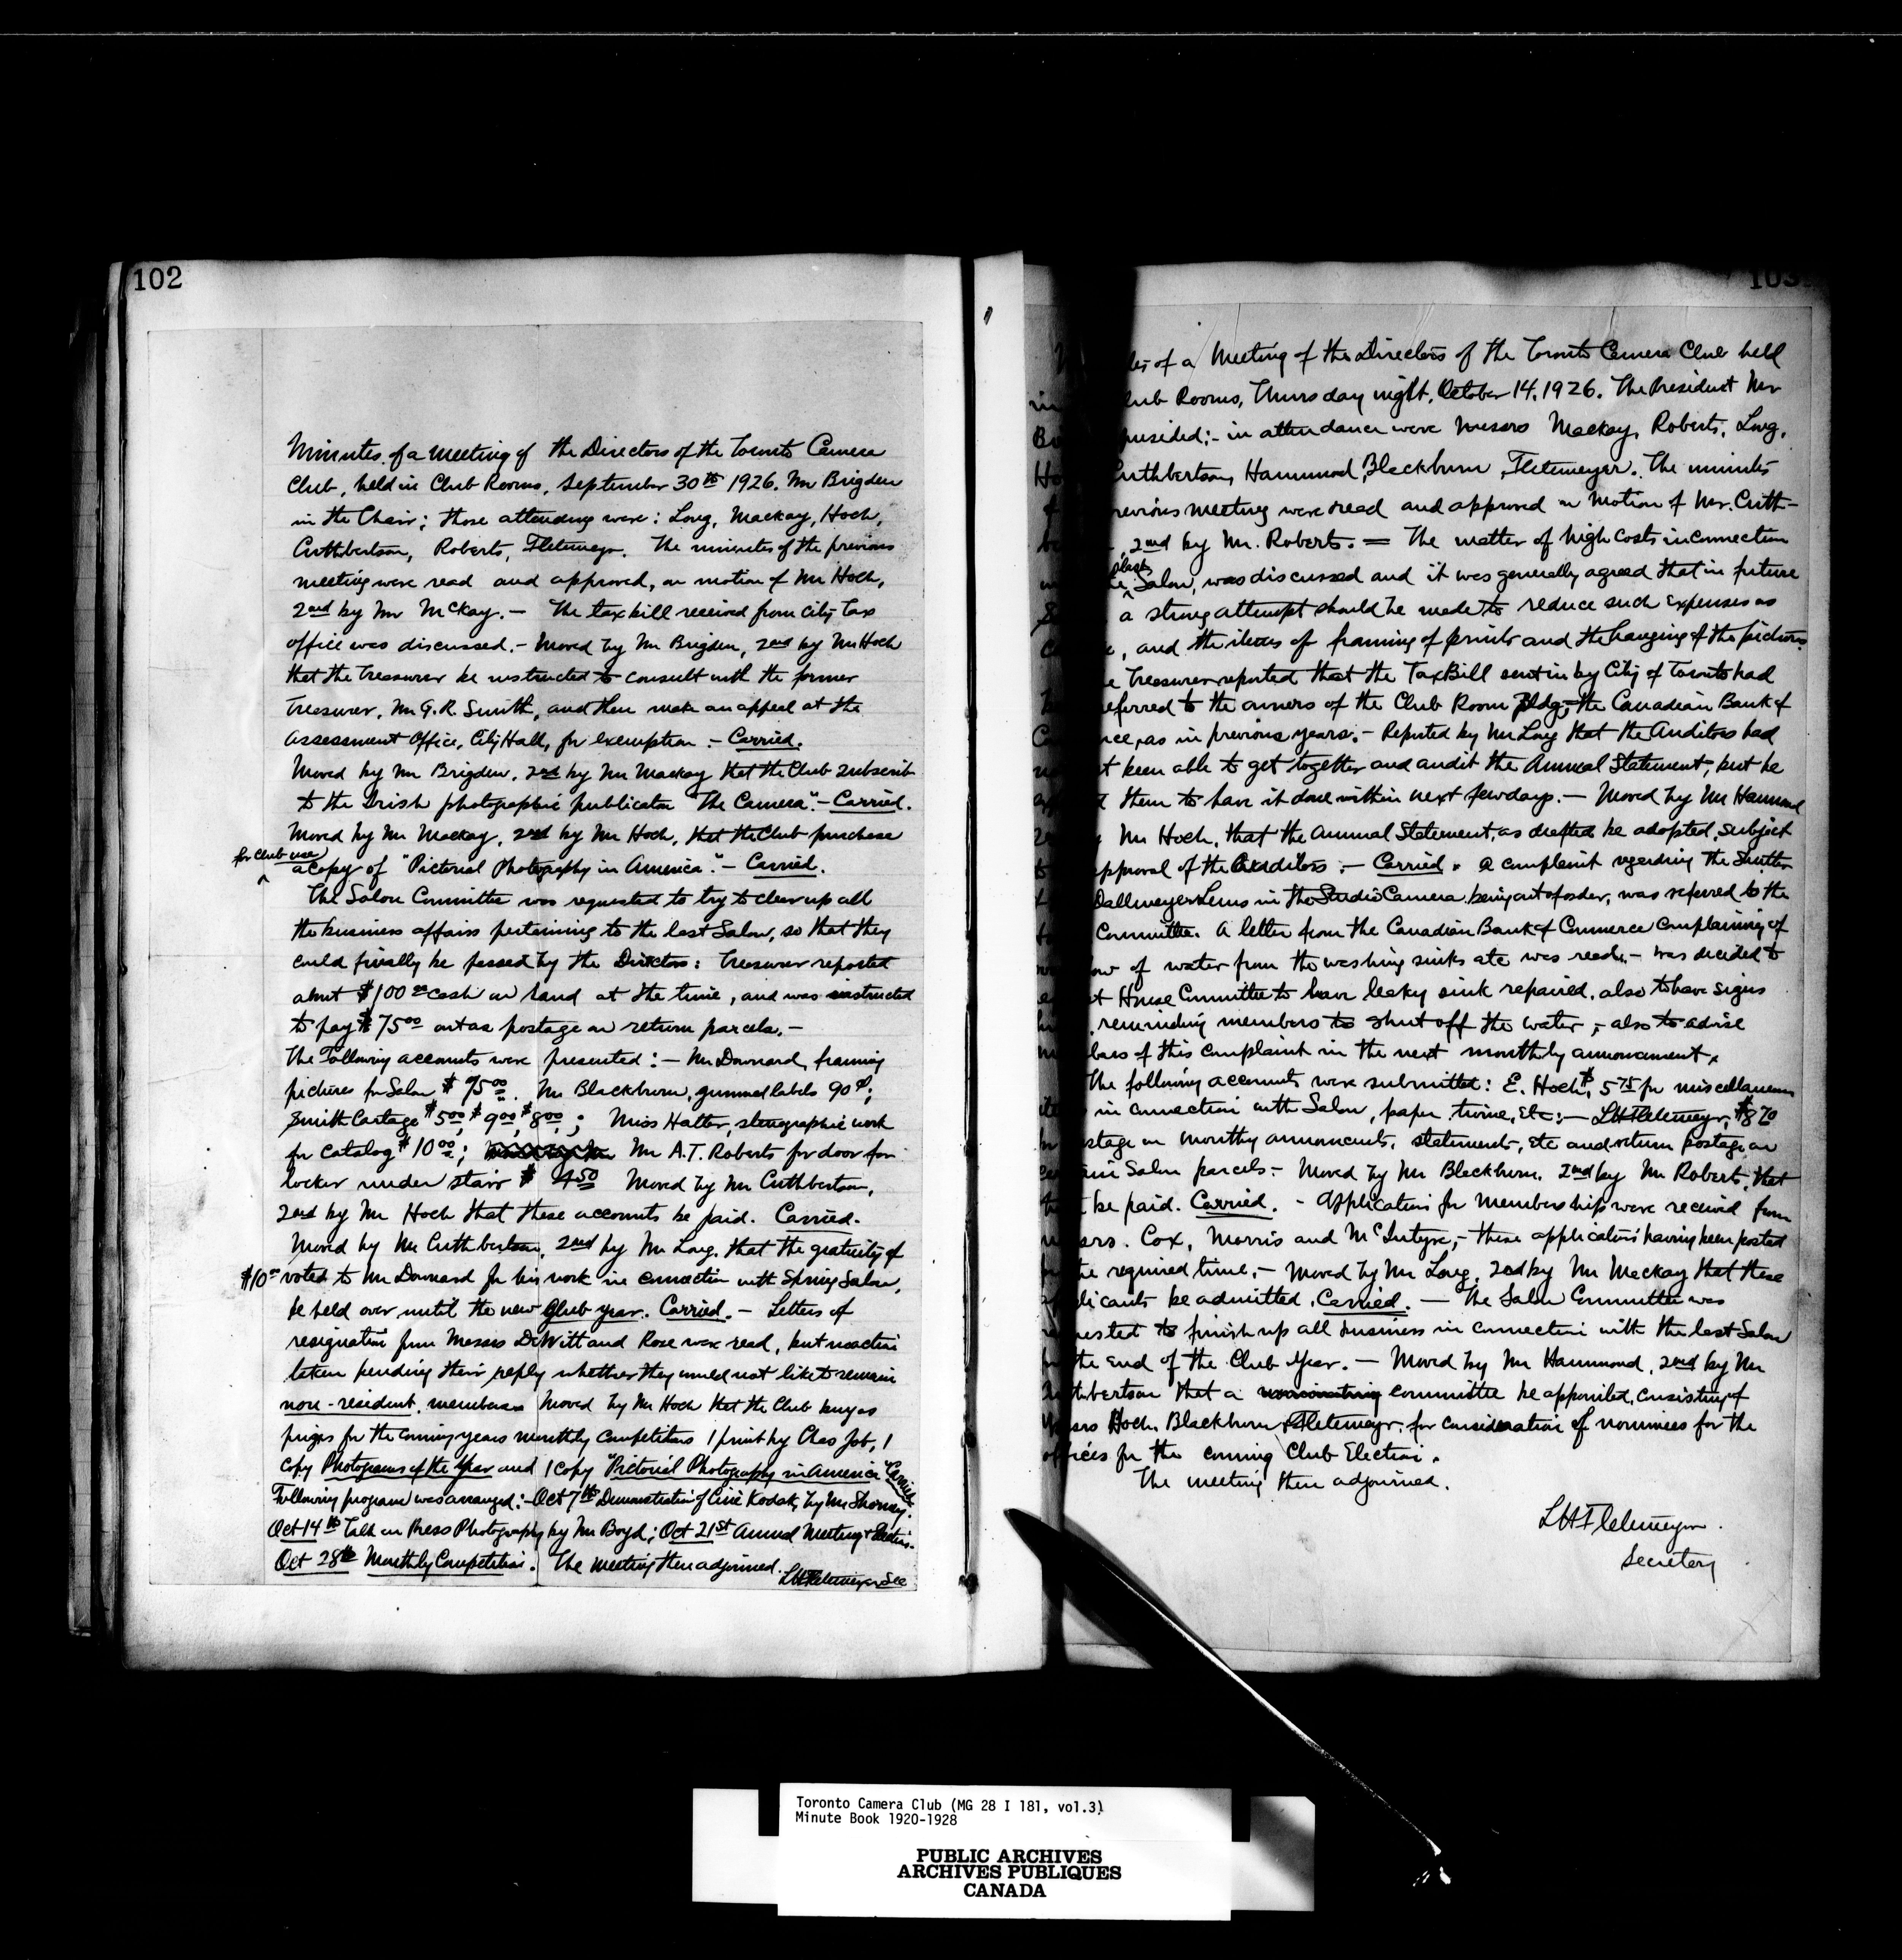 102
Minutes of a meeting of the Directors of the Toronto Camera
Club, held in Club Rooms, September 30th 1926. Mr Brigden
in the Chair; those attending were: Long, Mackay, Hoch,
Cuthbertson, Roberts, Fletemeyer. The minutes of the previous
meeting were read and approved, on motion of Mr Hoch,
2nd by Mr McKay. - The tax bill received from City Tax
office was discussed. - Moved by Mr Brigden, 2nd by Mr Hoch
that the Treasurer be instructed to consult with the former
Treasurer, Mr G. R. Smith, and then make an appeal at the
Assessment Office, City Hall, for exemption. - Carried.
Moved by Mr Brigden, 2nd by Mr Mackay that the Club subscrib
to the Irish photographic publication "The Camera". - Carried.
Moved by Mr Mackay, 2nd by Mr Hoch, that the Club purchase
for Club use
a Copy of "Pictorial Photography in America". - Carried.
The Salon Committee was requested to try to clear up all
the business affairs pertaining to the last Salon, so that they
could finally be passed by the Directors: Treasurer reported
about $100 00 cash on hand at the time, and was instructed
to pay $75 00 out as postage on return parcels. -
The following accounts were presented: - Mr Downard, framing
pictures for Salon $75 00. Mr Blackburn, gummed labels 90¢;
Smith Cartage $5 00, $9 00, $8 00; Miss Hatter, stenographic work
for Catalog $10 00; Mr A.T. Roberts for door for
locker under stairs $4 50 Moved by Mr Cuthbertson,
2nd by Mr Hoch that these accounts be paid. Carried.
Moved by Mr Cuthbertson, 2nd by Mr Long, that the gratuity of
$10 00 voted to Mr Downard for his work in connection with Spring Salon,
be held over until the new Club year. Carried. - Letters of
resignation from Messrs DeWitt and Rose were read, but no action
taken pending their reply whether they would not like to remain
non-resident members Moved by Mr Hoch that the Club buy as
prizes for the coming years monthly competitions 1 print by Chas Job, 1
copy Photograms of the Year and 1 Copy "Pictorial Photography in America" Carried.
Following program was arranged: - Oct 7th Demonstration of Ciné Kodak, by Mr
Oct 14th Talk on Press Photography by Mr Boyd; Oct 21st Annual Meeting + Election.
Oct 28th Monthly Competition. The meeting then adjourned.
LH Fletemeyer Sec
103
tes of a Meeting of the Directors of the Toronto Camera Club held
in lub Rooms, Thursday night, October 14, 1926. The President Mr
Br presided; - in attendance were Messrs Mackay, Roberts, Long,
Ho uthbertson, Hammond, Blackburn, Fletemeyer. The minutes
of revious meeting were read and approved on motion of Mr. Cuth-
, 2nd by Mr. Roberts. = The matter of high costs in connection
Salon, was discussed and it was generally agreed that in future
a strong attempt should be made to reduce such expenses as
, and the items of framing of prints and the hanging of the pictures.
e Treasurer reported that the Tax Bill sent in by City of Toronto had
eferred to the owners of the Club Room Bldg, the Canadian Bank of
Co rce, as in previous years. - Reported by Mr Long that the Auditors had
t been able to get together and audit the Annual Statement, but he
d them to have it done within next few days. - Moved by Mr Hammond
2 Mr Hoch, that the Annual Statement, as drafted be adopted, subject
to pproval of the Auditors. - Carried. A complaint regarding the Shutter
Dallmeyer Lens in the Studio Camera being out of order, was referred to the
Committee. A letter from the Canadian Bank of Commerce complaining of
ow of water from the washing sinks etc was read, - was decided to
t House Committee to have leaky sink repaired, also to have signs
reminding members to shut off the water, - also to advise
bers of this complaint in the next monthly announcement.
The following accounts were submitted: E. Hoch, $5 75 for miscellaneous
ite in connection with Salon, paper, twine, etc; - LH Fletemeyer, $8 70
stage on monthly announcents, statements, etc and return postage on
Salon parcels - Moved by Mr Blackburn, 2nd by Mr Roberts, that
be paid. Carried. - Applications for membership were received from
srs. Cox, Morris and McIntyre, - these applications having been posted
the required time, - Moved by Mr Long, 2nd by Mr Mackay that these
plicants be admitted. Carried. - The Salon Committee was
uested to finish up all business in connection with the last Salon
the end of the Club Year. - Moved by Mr Hammond, 2nd by Mr
uthbertson that a nominating committee be appointed, consisting of
Messrs Hoch, Blackburn, Fletemeyer, for consideration of nominees for the
offices for the coming Club Election.
The meeting then adjourned.
LH Fletemeyer.
Secretary
Toronto Camera Club (MG 28 I 181, vol.3)
Minute Book 1920-1928
PUBLIC ARCHIVES
ARCHIVES PUBLIQUES
CANADA